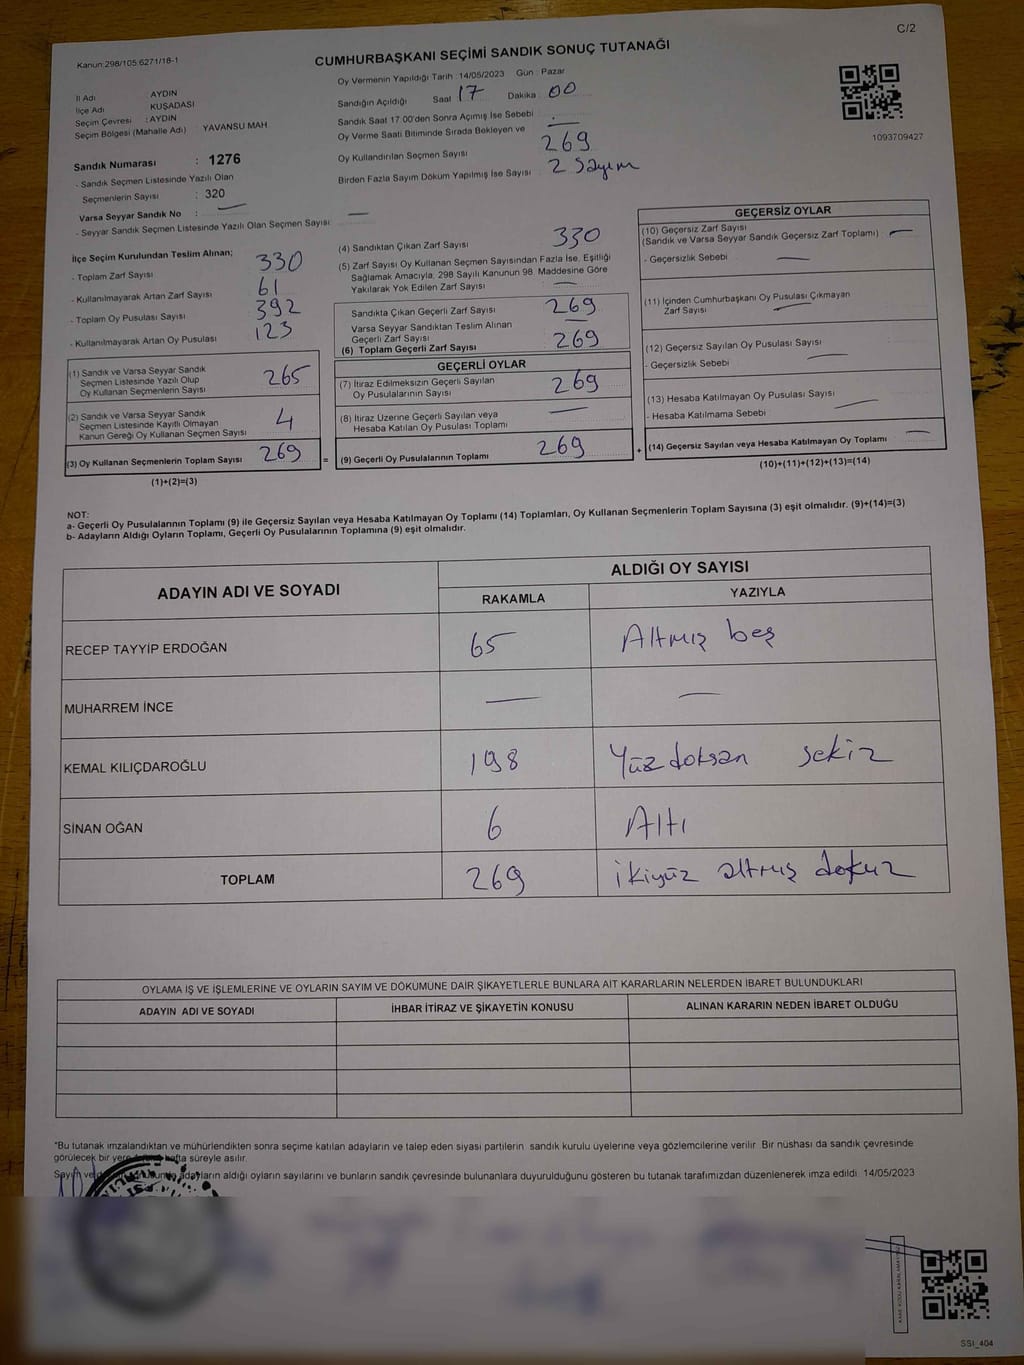 C/2
Kanun:298/105:6271/18-1
CUMHURBAŞKANI SEÇİMİ SANDIK SONUÇ TUTANAĞI
1093709427
İl Adı : AYDIN
İlçe Adı : KUŞADASI
Seçim Çevresi : AYDIN
Seçim Bölgesi (Mahalle Adı) : YAVANSU MAH.
Sandık Numarası : 1276
- Sandık Seçmen Listesinde Yazılı Olan
Seçmenlerin Sayısı : 320
Varsa Seyyar Sandık No : —
- Seyyar Sandık Seçmen Listesinde Yazılı Olan Seçmen Sayısı: —
Oy Vermenin Yapıldığı Tarih : 14/05/2023 Gün : Pazar
Sandığın Açıldığı Saat 17 Dakika : 00
Sandık Saat 17.00'den Sonra Açımış İse Sebebi : —
Oy Verme Saati Bitiminde Sırada Bekleyen ve
Oy Kullandırılan Seçmen Sayısı 269
Birden Fazla Sayım Döküm Yapılmış İse Sayısı : 2 Sayım
İlçe Seçim Kurulundan Teslim Alınan;
- Toplam Zarf Sayısı 330
- Kullanılmayarak Artan Zarf Sayısı 61
- Toplam Oy Pusulası Sayısı 392
- Kullanılmayarak Artan Oy Pusulası 123
(1) Sandık ve Varsa Seyyar Sandık
Seçmen Listesinde Yazılı Olup
Oy Kullanan Seçmenlerin Sayısı 265
(2) Sandık ve Varsa Seyyar Sandık
Seçmen Listesinde Kayıtlı Olmayan
Kanun Gereği Oy Kullanan Seçmen Sayısı 4
(3) Oy Kullanan Seçmenlerin Toplam Sayısı 269 =
(1)+(2)=(3)
(4) Sandıktan Çıkan Zarf Sayısı 330
(5) Zarf Sayısı Oy Kullanan Seçmen Sayısından Fazla İse, Eşitliği
Sağlamak Amacıyla, 298 Sayılı Kanunun 98. Maddesine Göre
Yakılarak Yok Edilen Zarf Sayısı —
Sandıkta Çıkan Geçerli Zarf Sayısı 269
Varsa Seyyar Sandıktan Teslim Alınan
Geçerli Zarf Sayısı —
(6) Toplam Geçerli Zarf Sayısı 269
GEÇERLİ OYLAR
(7) İtiraz Edilmeksizin Geçerli Sayılan
Oy Pusulasının Sayısı 269
(8) İtiraz Üzerine Geçerli Sayılan veya
Hesaba Katılan Oy Pusulası Toplamı —
(9) Geçerli Oy Pusulalarının Toplamı 269 +
GEÇERSİZ OYLAR
(10) Geçersiz Zarf Sayısı
(Sandık ve Varsa Seyyar Sandık Geçersiz Zarf Toplamı) —
- Geçersizlik Sebebi —
(11) İçinden Cumhurbaşkanı Oy Pusulası Çıkmayan
Zarf Sayısı —
(12) Geçersiz Sayılan Oy Pusulası Sayısı
- Geçersizlik Sebebi —
(13) Hesaba Katılmayan Oy Pusulası Sayısı
- Hesaba Katılmama Sebebi —
(14) Geçersiz Sayılan veya Hesaba Katılmayan Oy Toplamı —
(10)+(11)+(12)+(13)=(14)
NOT:
a- Geçerli Oy Pusulalarının Toplamı (9) ile Geçersiz Sayılan veya Hesaba Katılmayan Oy Toplamı (14) Toplamları, Oy Kullanan Seçmenlerin Toplam Sayısına (3) eşit olmalıdır. (9)+(14)=(3)
b- Adayların Aldığı Oyların Toplamı, Geçerli Oy Pusulalarının Toplamına (9) eşit olmalıdır.
ADAYIN ADI VE SOYADI ALDIĞI OY SAYISI
RAKAMLA YAZIYLA
RECEP TAYYİP ERDOĞAN 65 Altmış beş
MUHARREM İNCE — —
KEMAL KILIÇDAROĞLU 198 Yüz doksan sekiz
SİNAN OĞAN 6 Altı
TOPLAM 269 ikiyüz altmış dokuz
OYLAMA İŞ VE İŞLEMLERİNE VE OYLARIN SAYIM VE DÖKÜMÜNE DAİR ŞİKAYETLERLE BUNLARA AİT KARARLARIN NELERDEN İBARET BULUNDUKLARI
ADAYIN ADI VE SOYADI İHBAR İTİRAZ VE ŞİKAYETİN KONUSU ALINAN KARARIN NEDEN İBARET OLDUĞU
*Bu tutanak imzalandıktan ve mühürlendikten sonra seçime katılan adayların ve talep eden siyasi partilerin sandık kurulu üyelerine veya gözlemcilerine verilir. Bir nüshası da sandık çevresinde
görülecek bir yere hafta süreyle asılır.
Sayım ve adayların aldığı oyların sayılarını ve bunların sandık çevresinde bulunanlara duyurulduğunu gösteren bu tutanak tarafımızdan düzenlenerek imza edildi. 14/05/2023
SSI_404